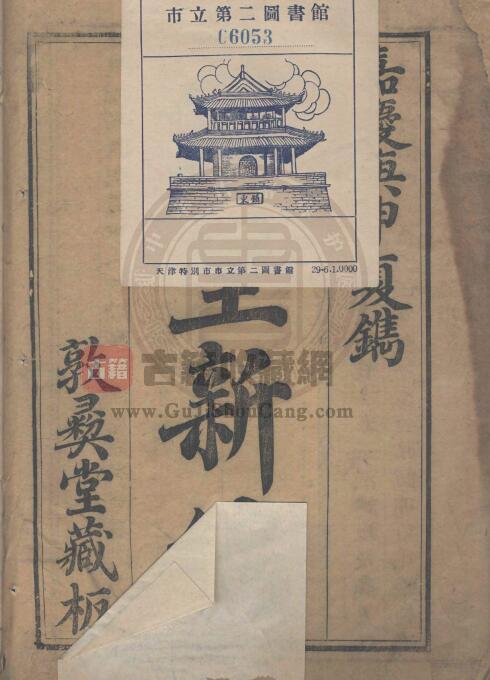 市立第二圖書館
C6053
天津特別市市立第二圖書館 29-6.1.0000
嘉慶庚申夏鐫
新
敦彝堂藏板
古籍
古籍收藏網
www.GuJiShouCang.com